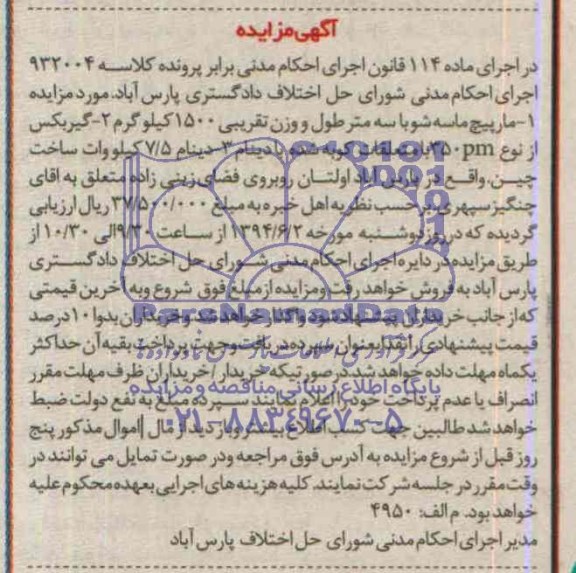 آگهی مزایده
در اجرای ماده ۱۱۴ قانون اجرای احکام مدنی برابر پرونده کلاسه ۹۳۲۰۰۴
اجرای احکام مدنی شورای حل اختلاف دادگستری پارس آباد، مورد مزایده
۱-مارپیچ ماسه شو با سه متر طول و وزن تقریبی ۱۵۰۰ کیلو گرم ۲-گیربکس
از نوع ۳۵۰pm با متعلقات کوبه شده با دینام ۳-دینام ۷/۵ کیلو وات ساخت
چین، واقع در پارس آباد اولتان روبروی فضای زینی زاده متعلق به اقای
چنگیز سپهری برحسب نظریه اهل خبره به مبلغ ۳۷/۵۰۰/۰۰۰ ریال ارزیابی
گردیده که در روز دوشنبه مورخه ۱۳۹۴/۶/۲ از ساعت ۹/۳۰ الی ۱۰/۳۰ از
طریق مزایده در دایره اجرای احکام مدنی شورای حل اختلاف دادگستری
پارس آباد به فروش خواهد رفت و مزایده از مبلغ فوق شروع و به آخرین قیمتی
که از جانب خریداران پیشنهاد شود واگذار خواهد شد و خریداران بدوا ۱۰ درصد
قیمت پیشنهادی را نقدا بعنوان سپرده دریافت و جهت پرداخت بقیه آن حداکثر
یکماه مهلت داده خواهد شد در صورتیکه خریدار/خریداران ظرف مهلت مقرر
انصراف یا عدم پرداخت خود را اعلام نمایند سپرده مبلغ به نفع دولت ضبط
خواهد شد طالبین جهت کسب اطلاع بیشتر و باز دید از مال |اموال مذکور پنج
روز قبل از شروع مزایده به آدرس فوق مراجعه ودر صورت تمایل می توانند در
وقت مقرر در جلسه شرکت نمایند. کلیه هزینه های اجرایی بعهده محکوم علیه
خواهد بود. م الف: ۴۹۵۰
مدیر اجرای احکام مدنی شورای حل اختلاف پارس آباد
ParsNamadData
پایگاه اطلاع رسانی مناقصه و مزایده
۰۲۱-۸۸۳۴۹۶۷۰-۵